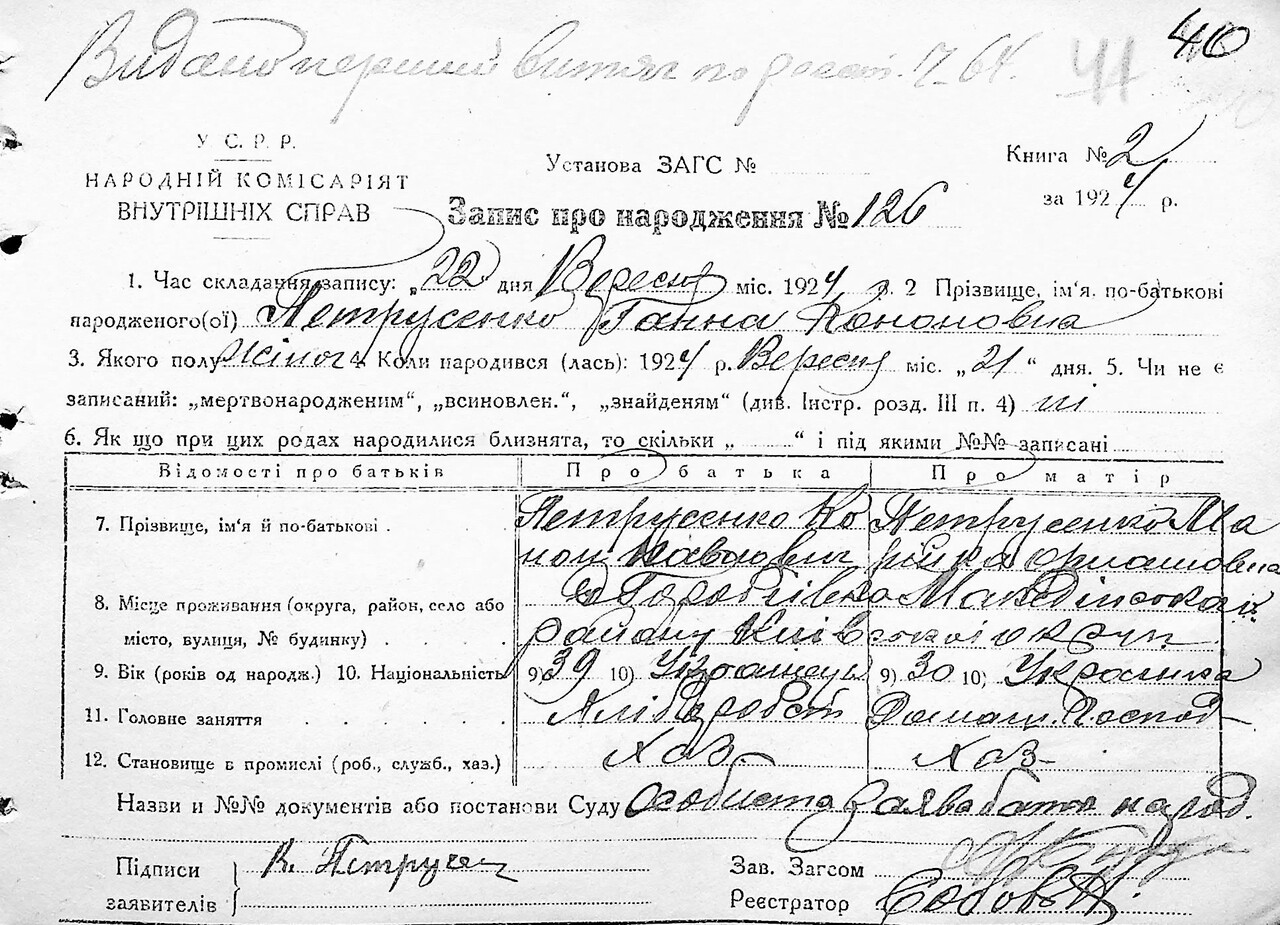 40
Видано перший витяг по реєст. 7-64. 41
У. С. Р. Р.
НАРОДНІЙ КОМІСАРІЯТ
ВНУТРІШНІХ СПРАВ
Установа ЗАГС №
Книга № 2
за 1924 р.
Запис про народження № 126
1. Час складання запису: „22" дня Вересня міс. 1924 р. 2 Прізвище, ім'я, по-батькові
народженого(ої) Петрусенко Ганна Кононовна
3. Якого полу жіноч. 4. Коли народився (лась): 1924 р. Вересня міс. „21" дня. 5. Чи не є
записаний: „мертвонародженим", „всиновлен.", „знайденям" (див. Інстр. розд. III п. 4) ні
6. Як що при цих родах народилися близнята, то скільки „ " і під якими №№ записані
Відомості про батьків Про батька Про матір
7. Прізвище, ім'я й по-батькові Петрусенко Ко Петрусенко Ма
нон Павлович рійка
8. Місце проживання (округа, район, село або с Горобіївка
місто, вулиця, № будинку) району Київської округи
9. Вік (років од народж.) 10. Національність 9) 39 10) Українець 9) 30 10) Українка
11. Головне заняття Хлібороб Домаш. Господ
12. Становище в промислі (роб., служб., хаз.) Хаз. Хаз
Назви и №№ документів або постанови Суду Особиста заява батьк народ.
Підписи
заявителів
К. Петрусен
Зав. Загсом
Реєстратор